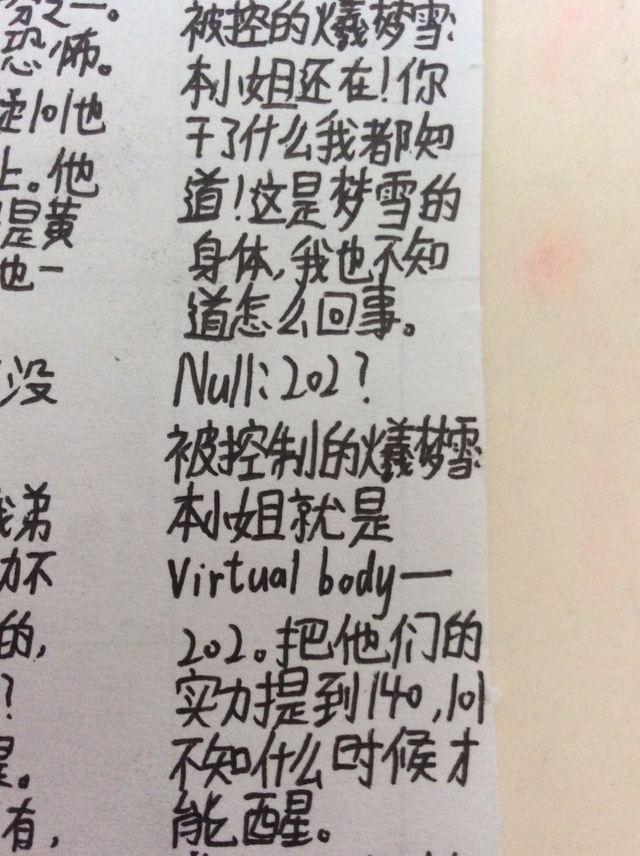 之一。
恐怖。
101他
上。他
是黄
他一
没
我弟
力不
的,
?
有,
被控的爔梦雪:
本小姐还在!你
干了什么我都知
道!这是梦雪的
身体,我也不知
道怎么回事。
Null:202?
被控制的爔梦雪:
本小姐就是
Virtual body—
202。把他们的
实力提到140,101
不知什么时候才
能醒。